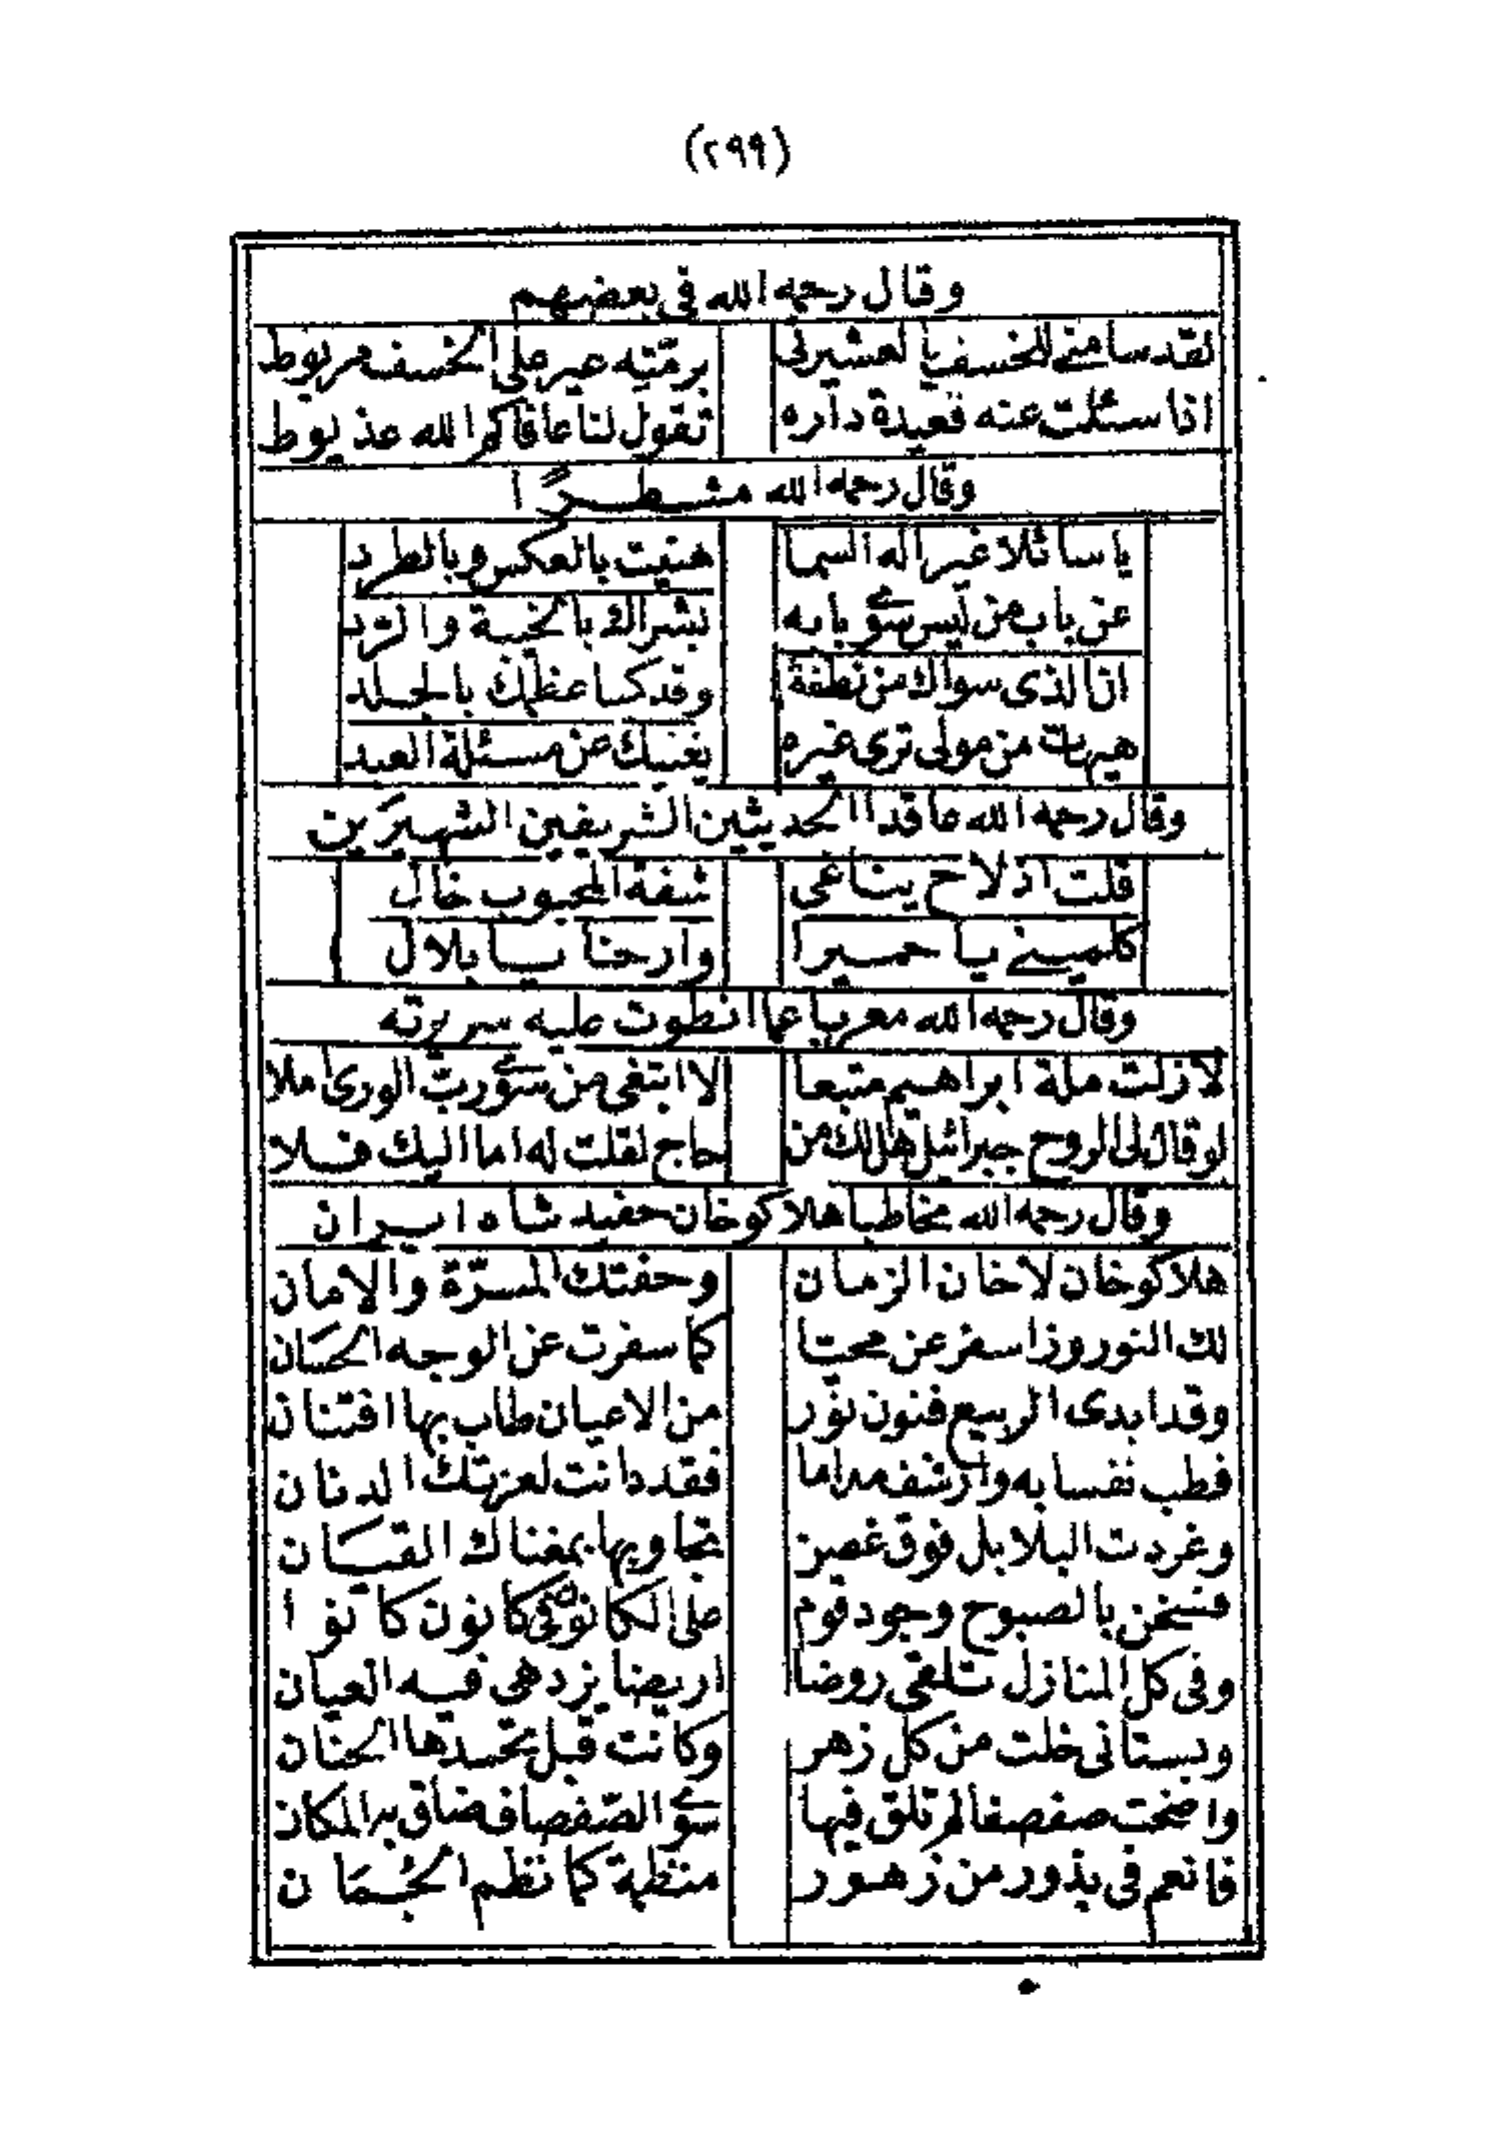 (٢٩٩)
وقال رحمه الله في بعضهم
لقد سامني للخسف يا لعشيرتي برمّته عير على الخسف مربوط
اذا سئلت عنه قعيدة داره تقول لنا عافاكم الله عذيوط
وقال رحمه الله مشطرًا
يا سائلا غير اله السما هنيت بالعكس وبالطرد
عن باب من ليس سوى بابه بشراك بالخيبة والرد
ان الذى سواك من نطفة وقد كسا عظمك بالجلد
هيهات من مولى ترى غيره يغنيك عن مسئلة العبد
وقال رحمه الله عاقدا الحديثين الشريفين الشهيرين
قلت اذ لاح يناغى شفة المحبوب خال
كلميني يا حميرا وارحنا يا بلال
وقال رحمه الله معربا عما انطوت عليه سريرته
لا زلت ملة ابراهيم متبعا لا ابتغى من سوى ربّ الورى املا
لو قال لى الروح جبرائيل هل لك من حاج لقلت له اما اليك فلا
وقال رحمه الله مخاطبا هلاكوخان حفيد شاه ايران
هلاكوخان لا خان الزمان وحفتك المسرّة والامان
لك النوروز اسفر عن محيّا كما سفرت عن الوجه الحسان
وقد ابدى الربيع فنون نور من الاعيان طاب بها افتنان
فطب نفسا به وارشف مداما فقد دانت لعزتك الدنان
وغردت البلابل فوق غصن تجاوبها بمغناك القيان
فنسخن بالصبوح وجود قوم على الكانون في كانون كانوا
وفى كل المنازل تلقى روضا اريضا يزدهى فيه العيان
وبستانى خلت من كل زهر وكانت قبل تحسدها الجنان
واضحت صفصفا لم تلق فيها سوى الصفصاف ضاق به المكان
فانعم فى بذور من زهور منظمة كما نظم الجمان